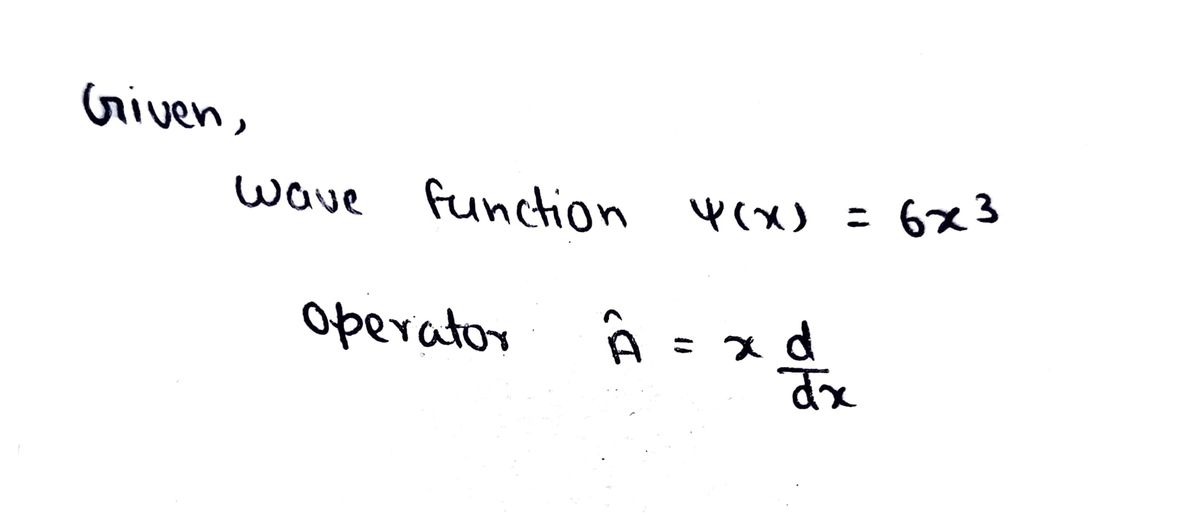 Given,
wave function ψ(x) = 6x³
operator Â = x d/dx